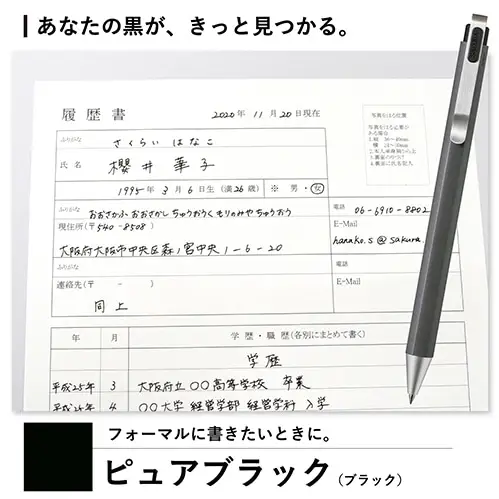 あなたの黒が、きっと見つかる。
履歴書
2020年 11月20日現在
ふりがな さくらい はなこ
氏名 櫻井 華子
1995年 3月 6日生（満26歳） ※ 男・女
写真をはる位置
写真をはる必要が
ある場合
ふりがな おおさかふ おおさかし ちゅうおうく もりのみや ちゅうおう
現住所(〒540-8508)
大阪府大阪市中央区森ノ宮中央1-6-20
電話 06-6910-8802
E-Mail
hanako.s@sakura.
ふりがな
連絡先(〒 - )
同上
電話
E-Mail
年 月 学歴・職歴(各別にまとめて書く)
学歴
平成25年 3 大阪府立〇〇高等学校 卒業
4 〇〇大学 経営学部 経営学科 入学
フォーマルに書きたいときに。
ピュアブラック（ブラック）